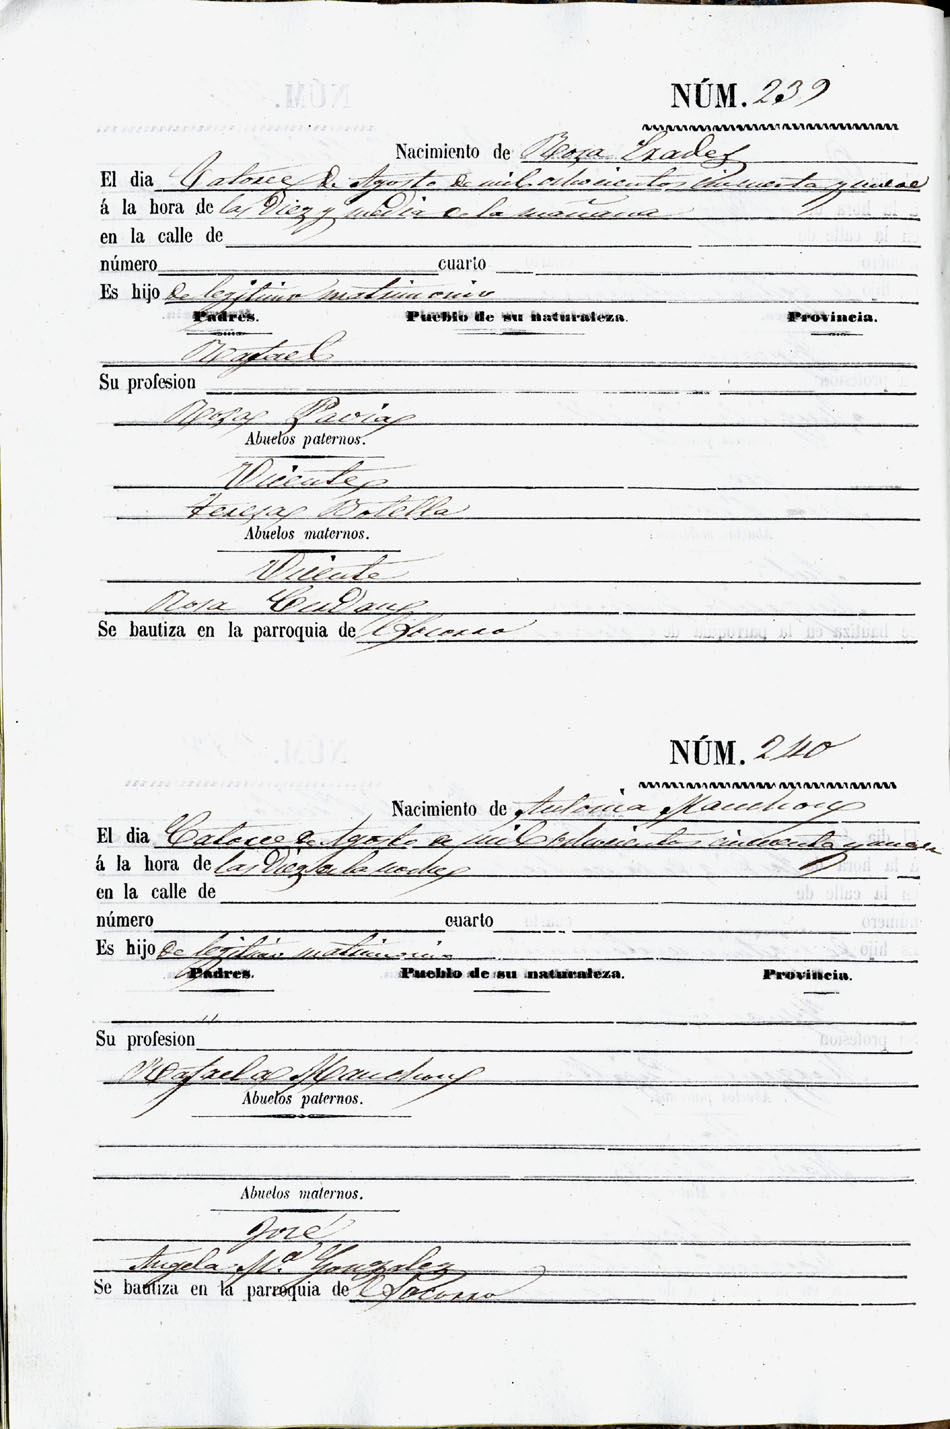 NÚM. 239
Nacimiento de Rosa Prades
El dia Catorce de Agosto de mil ochocientos cincuenta y nueve
á la hora de las Diez y media de la mañana
en la calle de
número cuarto
Es hijo de legitimo matrimonio
Padres. Pueblo de su naturaleza. Provincia.
Rafael
Su profesion
Rosa Pavia
Abuelos paternos.
Vicente
Teresa Botella
Abuelos maternos.
Vicente
Rosa
Se bautiza en la parroquia de El Socorro
NÚM. 240
Nacimiento de Antonia Manchon
El dia Catorce de Agosto de mil ochocientos cincuenta y nueve
á la hora de las Diez de la noche
en la calle de
número cuarto
Es hijo de legitimo matrimonio
Padres. Pueblo de su naturaleza. Provincia.
Su profesión
Rafaela Manchon
Abuelos paternos.
Abuelos maternos.
José
Angela Mª Gonzalez
Se bautiza en la parroquia de El Socorro